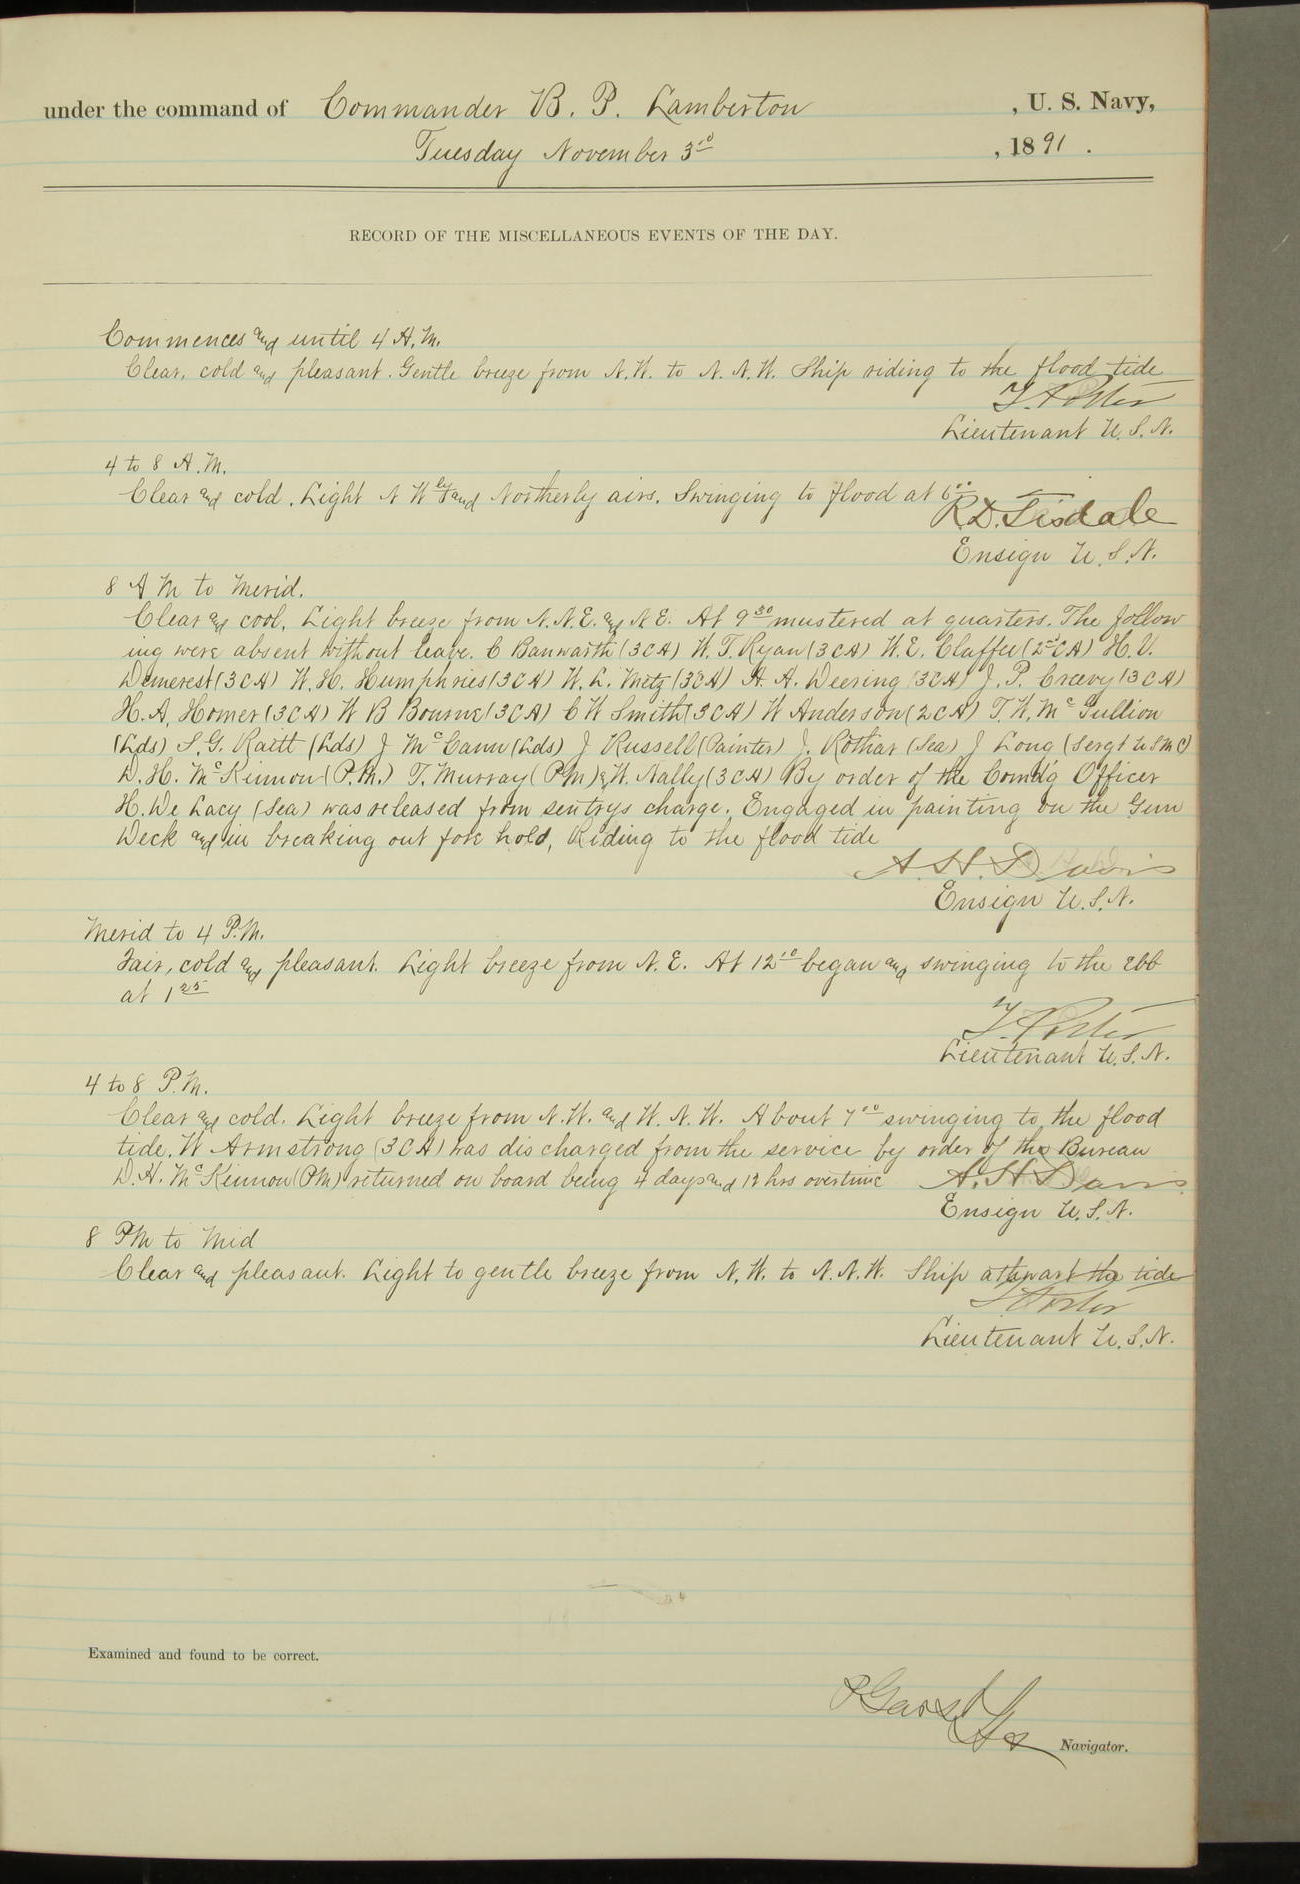 under the command of Commander B. P. Lamberton , U. S. Navy,
Tuesday November 3rd , 1891 .
RECORD OF THE MISCELLANEOUS EVENTS OF THE DAY.
Commences and until 4 A.M.
Clear, cold and pleasant. Gentle breeze from N.W. to N.N.W. Ship riding to the flood tide
T. Porter
Lieutenant U.S.N.
4 to 8 A.M.
Clear and cold. Light N Wly and Northerly airs. Swinging to flood at 6 00
R.D. Tisdale
Ensign U.S.N.
8 A M to Merid.
Clear and cool. Light breeze from N.N.E. and N E. At 9 30 mustered at quarters. The follow
ing were absent without leave. C Banwarth (3CA) W. T. Ryan (3CA) W. E. Claffee (2d CA) H. V.
Demerest (3CA) W. H. Humphries (3CA) W. L. Metz (3CA) A. A. Deering (3CA) J. P. Creevy (3CA)
H. A. Homer (3CA) W B Bourne (3CA) C W Smith (3CA) W Anderson (2CA) T. W. Mc Gullion
(Lds) S. G. Raitt (Lds) J McCann (Lds) J Russell (Painter) J. Rothar (Sea) J Long (Sergt U S M C)
D. H. McKinnon (P.M.) T. Murray (PM) & W. Nally (3CA) By order of the Comd'g Officer
H. De Lacy (Sea) was released from sentrys charge. Engaged in painting on the Gun
Deck and in breaking out fore hold, Riding to the flood tide
A. H. Davis
Ensign U.S.N.
Merid to 4 P.M.
Fair, cold and pleasant. Light breeze from N. E. At 12 10 began and swinging to the ebb
at 1 25
T. Porter
Lieutenant U.S.N.
4 to 8 P.M.
Clear and cold. Light breeze from N.W. and W.N.W. About 7 00 swinging to the flood
tide. W Armstrong (3CA) was discharged from the service by order of the Bureau
D. H. McKinnon (PM) returned on board being 4 days and 12 hrs overtime A. H Davis
Ensign U.S.N.
8 PM to Mid
Clear and pleasant. Light to gentle breeze from N.W. to N.N.W. Ship athwart the tide
T Porter
Lieutenant U.S.N.
Examined and found to be correct.
Navigator.